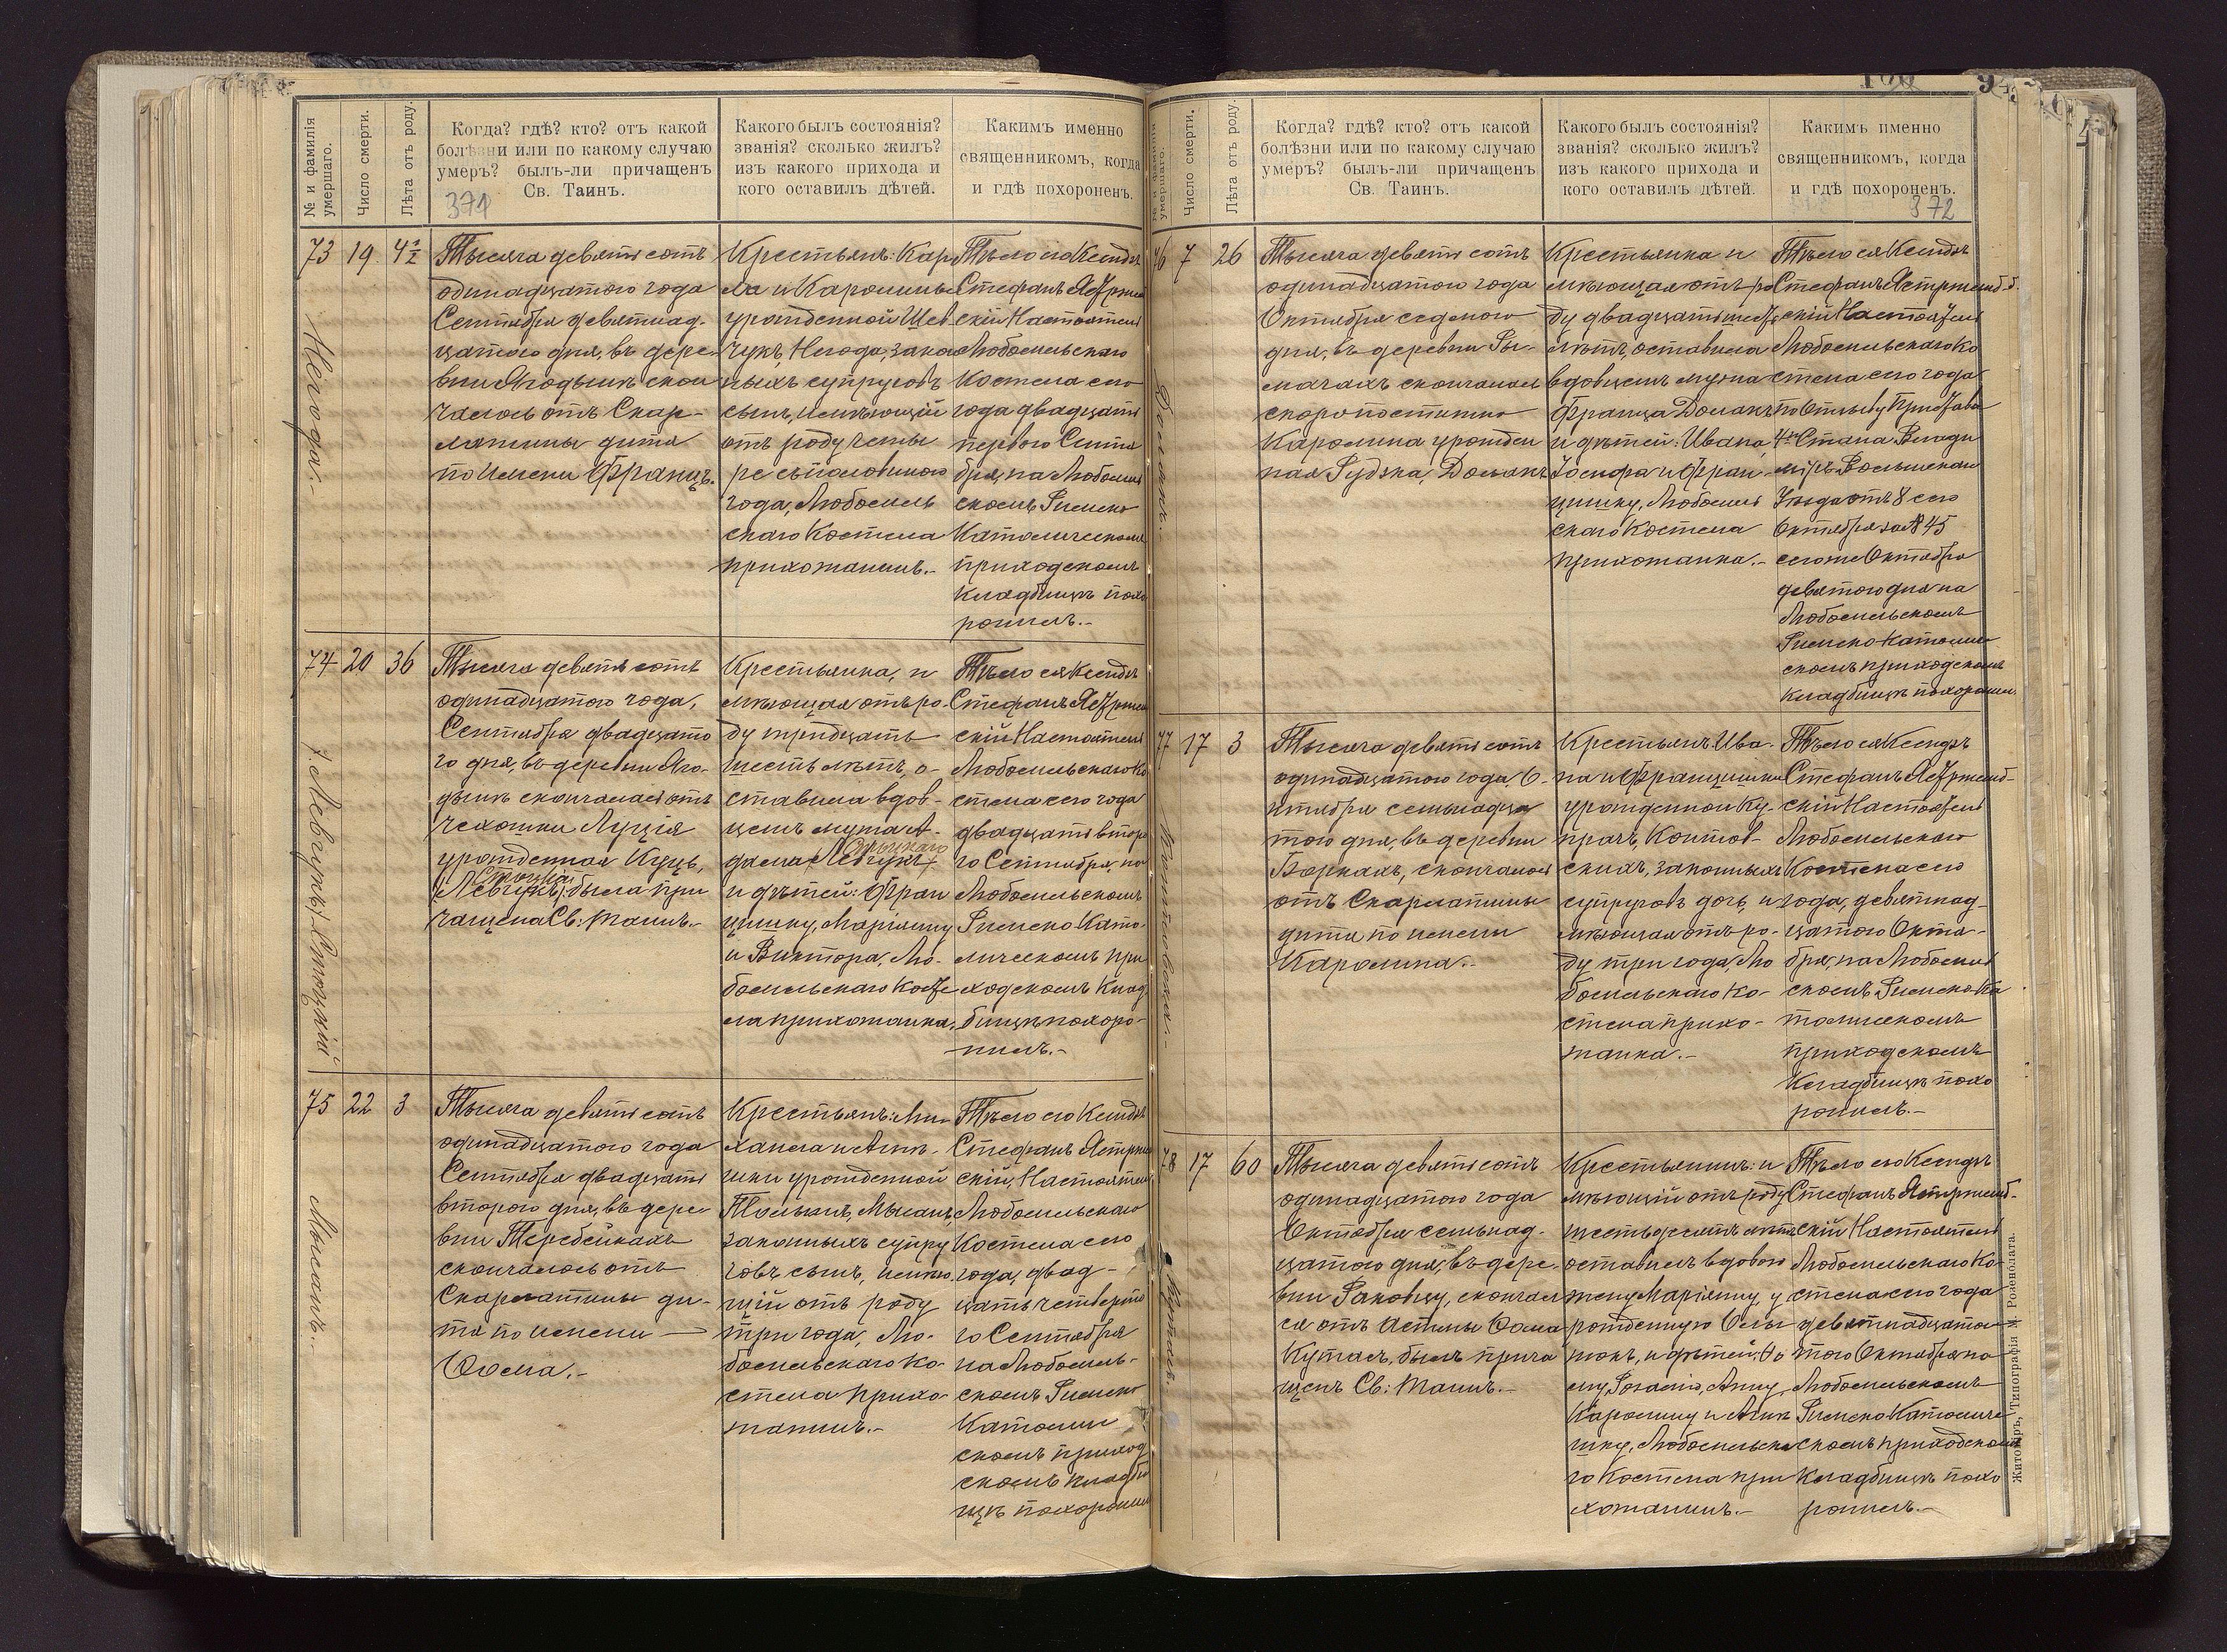 № и фамилія умершаго.
Число смерти.
Лѣта отъ роду.
Когда? гдѣ? кто? отъ какой
болѣзни или по какому случаю
умеръ? былъ-ли причащенъ
Св. Таинъ.
371
Какого былъ состоянія?
званія? сколько жилъ?
изъ какого прихода и
кого оставилъ дѣтей.
Какимъ именно
священникомъ, когда
и гдѣ похороненъ.
73 19 4½
Негода.-
Тысяча девятьсотъ
одинадцатого года
Сентября девятнад-
цатого дня, въ дере-
вни Ягодынѣ скон
чалось отъ Скар-
лятины дитя
по имени Францъ.
Крестьянъ: Кар
ла и Каролины
урожденной Шев
чукъ, Негода, закон
ныхъ супруговъ
сынъ, имѣющій
отъ роду четы
ре съ половиною
года, Любомль
скаго Костела
прихожанинъ.-
Тѣло его Ксендзъ
Стефанъ Ястржемб
скій Настоятель
Любомльскаго
Костела сего
года двадцать
первого Сентя
бря, на Любомль
скомъ Римско
Католическомъ
приходскомъ
Кладбищѣ похо
ронилъ.-
74 20 36
Левчукъ Стоцкій
Тысяча девятьсотъ
одинадцатого года,
Сентября двадцато
го дня, въ деревни Яго-
дынѣ скончалась отъ
чехотки Луція
урожденная Куць,
Стоцка
(Левчукъ), была при
чащена Св: Таинъ.-
Крестьянка, и
мѣющая отъ ро-
ду тридцать
шесть лѣтъ, о-
ставила вдов-
цемъ мужа А-
дама (Левчукъ)
и дѣтей: Фран
цишку, Маріянну
и Виктора, Лю-
бомльскаго Косте
ла прихожанка.
Тѣло ея Ксендзъ
Стефанъ Ястржемб
скій Настоятель
Любомльскаго Ко
стела сего года
двадцать второ
го Сентября, на
Любомльскомъ
Римско Като-
лическомъ при
ходскомъ Клад
бищѣ похоро-
нилъ.-
75 22 3
Тысяча девятьсотъ
одинадцатого года
Сентября двадцать
второго дня, въ дере-
вни Теребейкахъ
скончалось отъ
Скарлатины ди-
тя по имени —
Ѳома.-
Крестьянъ: Ми-
хаила и Агнѣ-
шки урожденной
законныхъ супру
говъ, сынъ, имѣю-
щій отъ роду
три года, Лю-
бомльскаго Ко-
стела прихо-
жанинъ.-
Тѣло его Ксендзъ
Стефанъ Ястржемб
скій, Настоятель
Любомльскаго
Костела сего
года, двад-
цать четверто
го Сентября
на Любомль-
скомъ Римско
Католи
скомъ приход
скомъ кладби
щѣ похоронилъ
№ и фамилія умершаго.
Число смерти.
Лѣта отъ роду.
Когда? гдѣ? кто? отъ какой
болѣзни или по какому случаю
умеръ? былъ-ли причащенъ
Св. Таинъ.
Какого былъ состоянія?
званія? сколько жилъ?
изъ какого прихода и
кого оставилъ дѣтей.
Какимъ именно
священникомъ, когда
и гдѣ похороненъ.
372
76 7 26
Доманъ.-
Тысяча девятьсотъ
одинадцатого года
Октября седмого
дня, въ деревни Ры-
мачахъ скончалась
скоропостижно
Каролина урожден
ная Рудзка, Доманъ
Крестьянка и
мѣющая отъ ро
ду двадцать шесть
лѣтъ, оставила
вдовцемъ мужа
Франца Доманъ
и дѣтей: Ивана,
Іосифа и Фран-
цишку, Любомль
скаго Костела
прихожанка.-
Тѣло ея Ксендзъ
Стефанъ Ястржемб-
скій Настоятель
Любомльскаго Ко
стела сего года
по Отзыву Пристава
4го Стана Влади
міръ Волынскаго
Уѣзда отъ 8 сего
Октября за № 45
сего же Октября
девятого дня на
Любомльскомъ
Римско Католиче
скомъ приходскомъ
Кладбищѣ похоронилъ
77 17 3
Тысяча девятьсотъ
одинадцатого года, О-
ктября семнадца
того дня, въ деревни
Боркахъ, скончалось
отъ Скарлатины
дитя по имени
Каролина.-
Крестьянъ: Ива-
на и Францишки
урожденной Ку-
скихъ, законныхъ
супруговъ дочь, и
мѣющая отъ ро-
ду три года, Лю
бомльскаго Ко-
стела прихо-
жанка.-
Тѣло ея Ксендзъ
Стефанъ Ястржемб-
скій Настоятель
Любомльскаго
Костела сего
года, девятнад-
цатого Октя-
бря, на Любомль
скомъ Римско Ка
толическомъ
приходскомъ
Кладбищѣ похо
ронилъ.-
78 17 60
Кутасъ.
Тысяча девятьсотъ
одинадцатого года
Октября семнад-
цатого дня, въ дере-
вни Раковцу, скончал
ся отъ Астмы Ѳома
Кутасъ, былъ прича
щенъ Св: Таинъ.-
Крестьянинъ: и
мѣющій отъ роду
шестьдесятъ лѣтъ
оставилъ вдовою
жену Маріянну, у
рожденную
Каролину и Агнѣ
шку, Любомльска
го Костела при
хожанинъ.-
Тѣло его Ксендзъ
Стефанъ Ястржемб-
скій Настоятель
Любомльскаго Ко-
стела сего года
того Октября на
Любомльскомъ
Римско Католиче
скомъ приходскомъ
Кладбищѣ похо
ронилъ.-
Житомиръ, Типографія М. Розенблата.